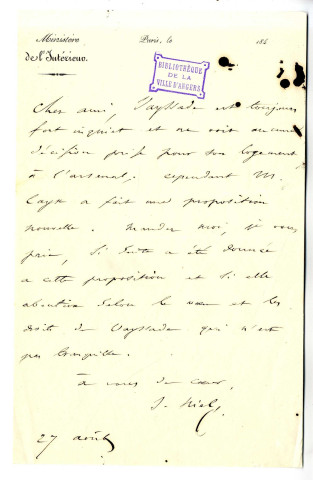 Ministère
de l'Intérieur.
Paris, le 184
BIBLIOTHÈQUE
DE LA
VILLE D'ANGERS
Cher ami, Vayssade est toujours
fort inquiet et ne voit aucune
décision prise pour son logement
à l'arsenal. cependant M.
Cayx a fait une proposition
nouvelle. Mandez moi, je vous
prie, si suite a été donnée
à cette proposition et si elle
aboutira selon le vœu et les
droits de Vayssade qui n'est
pas tranquille.
à vous de cœur,
27 août